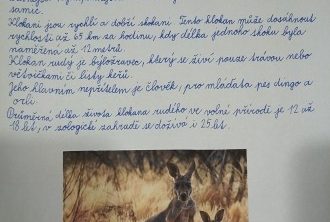 samic.
Klokani jsou rychlí a dobří skokani. Tento klokan může dosáhnout
rychlosti až 65 km za hodinu, kdy délka jednoho skoku byla
naměřená až 12 metrů.
Klokan rudý je býložravec, který se živí pouze trávou nebo
větvičkami či listy keřů.
Jeho hlavním nepřítelem je člověk, pro mláďata pes dingo a
orli.
Průměrná délka života klokana rudého ve volné přírodě je 12 až
18 let, v zoologické zahradě se dožívá i 25 let.